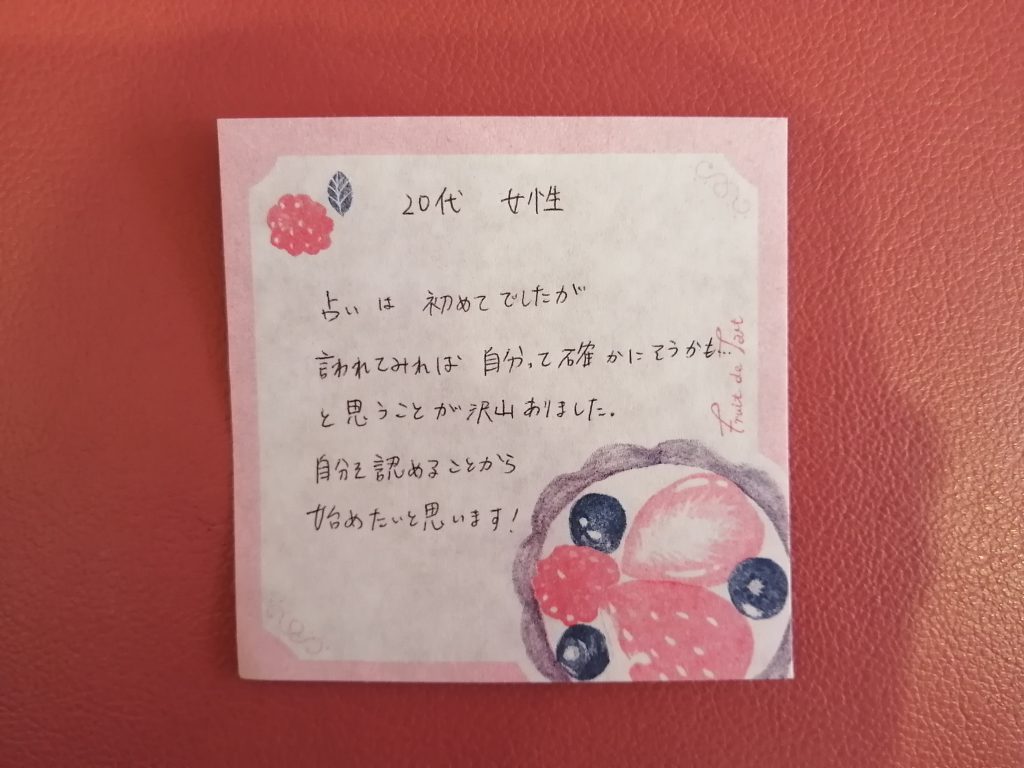 20代 女性
占いは 初めてでしたが
言われてみれば 自分って確かにそうかも…
と思うことが沢山ありました。
自分を認めることから
始めたいと思います!
Fruit de Tart